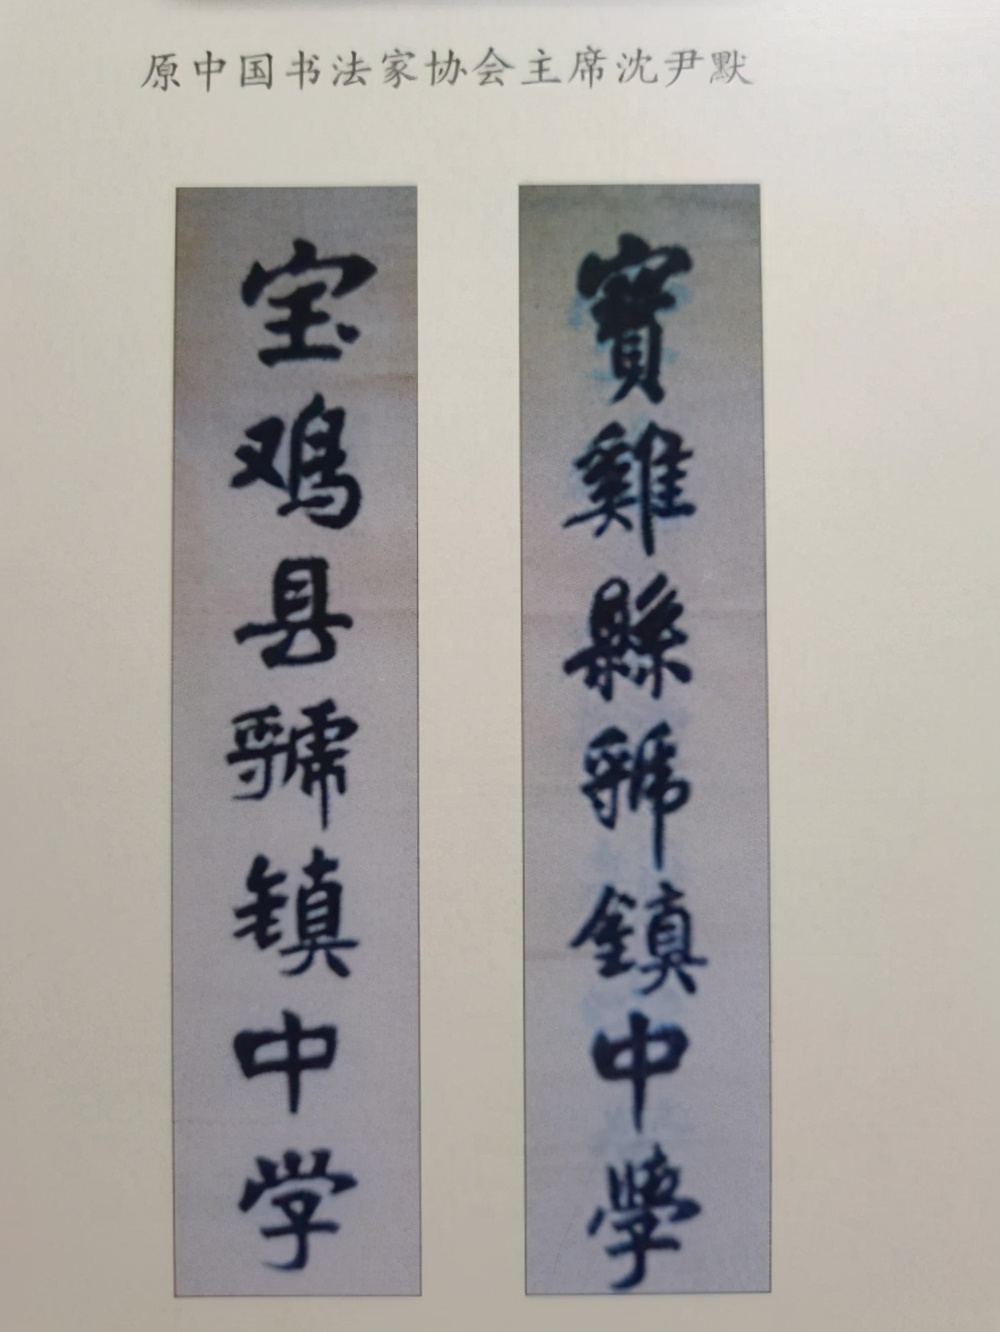 原中国书法家协会主席沈尹默
宝鸡县虢镇中学
寶雞縣虢鎮中學